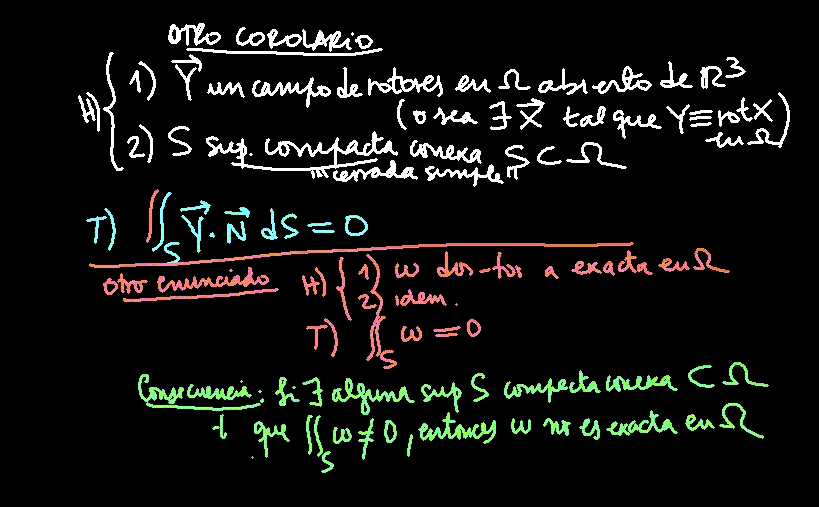 OTRO COROLARIO
H) { 1) Y⃗ un campo de rotores en Ω abierto de R³
(o sea ∃ X⃗ tal que Y≡rotX en Ω)
2) S sup. compacta conexa S⊂Ω
"cerrada simple"
T) ∬_S Y⃗·N⃗ dS = 0
Otro enunciado H) { 1) ω dos-for a exacta en Ω
2) idem.
T) ∬_S ω = 0
Consecuencia: Si ∃ alguna sup S compacta conexa ⊂ Ω
t que ∬_S ω ≠ 0, entonces ω no es exacta en Ω